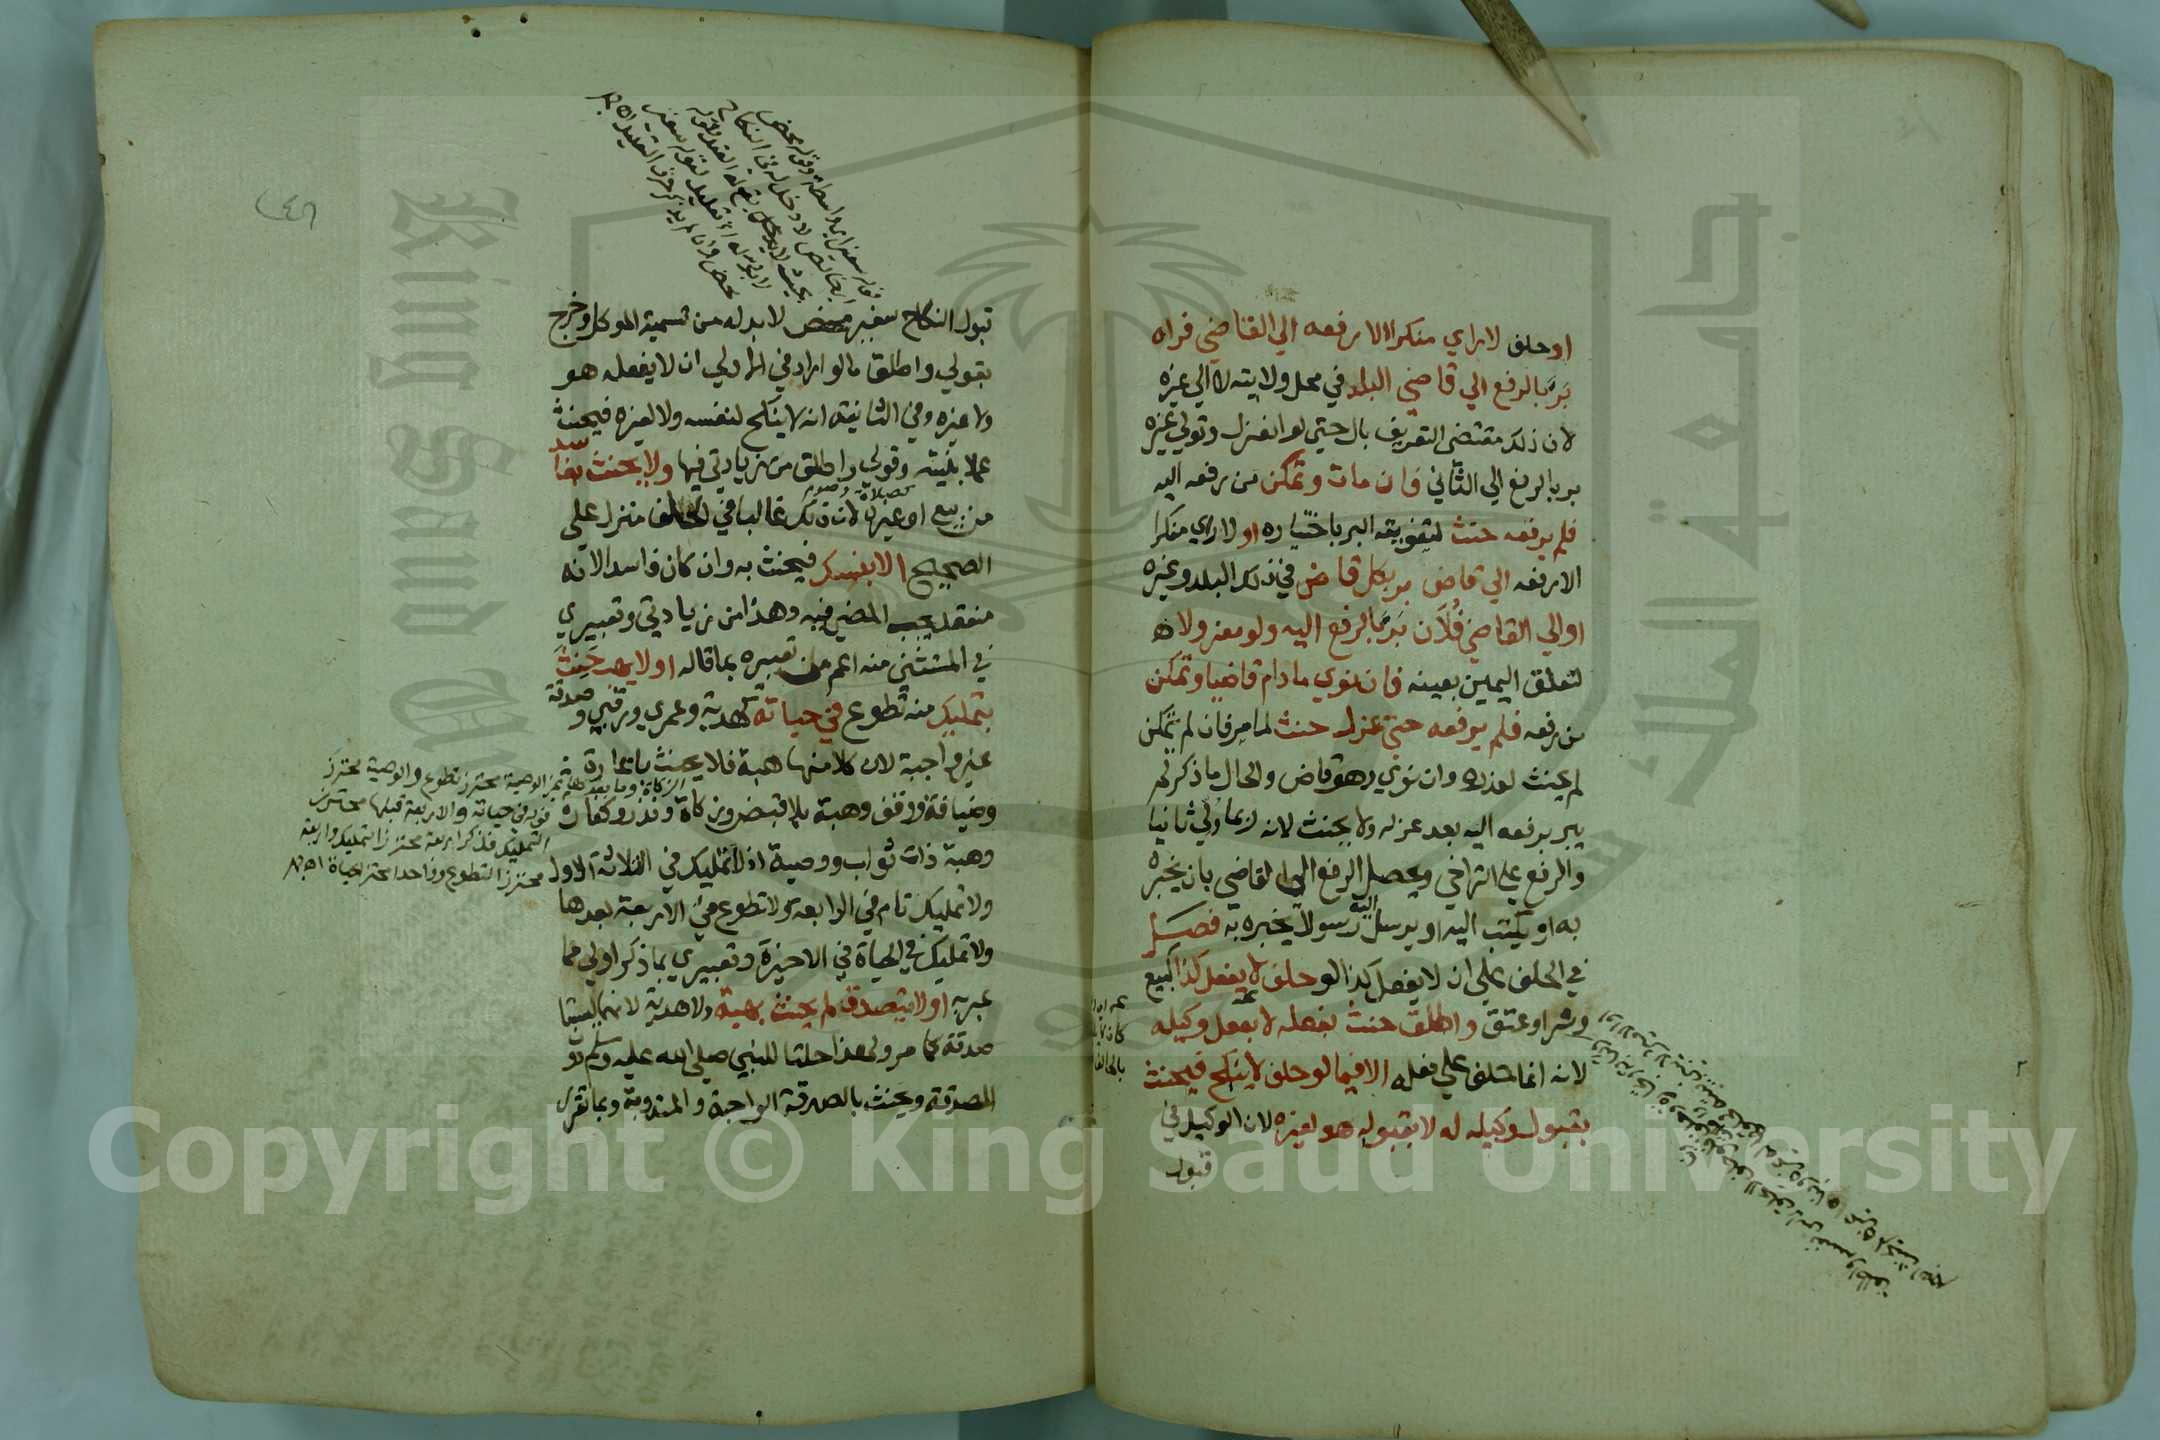 او حلف لا راي منكرا الا رفعه الي القاضي فراه
بَرَّ بالرفع الي قاضي البلد في محل ولايته لا الي غيره
لان ذلك مقتضي التعريف بال حتي لو انعزل وتولي غيره
بر بالرفع الي الثاني فان مات وتمكن من رفعه اليه
فلم يرفعه حنث لتفويته البر باختياره او لا راي منكرا
الا رفعه الي قاض بر بكل قاض في ذلك البلد وغيره
او الي القاضي فُلَان بَرَّ بالرفع اليه ولو معزولا
لتعلق اليمين بعينه فان نوي ما دام قاضيا وتمكن
من رفعه فلم يرفعه حتي عزل حنث لما مر فان لم يتمكن
لم يحنث لعذره وان نوي وهو قاض والحال ما ذكر لم
يبر برفعه اليه بعد عزله ولا يحنث لانه ربما ولي ثانيا
والرفع علي التراخي ويحصل الرفع الي القاضي بان يخبره
به او يكتب اليه او يرسل اليه رسولا يخبره به فصل
في الحلف علي ان لا يفعل كذا لو حلف لا يفعل كذا كبيع
وشرا وعتق واطلق حنث بفعله لا بفعل وكيله
لانه انما حلف علي فعله الا فيما لو حلف لا ينكح فيحنث
بقبول وكيله له لا بقبوله هو لغيره لان الوكيل في
قبول
قبول النكاح سفير محض لا بد له من تسمية الموكل وخرج
بقولي واطلق ما لو اراد في الاولي ان لا يفعله هو
ولا غيره وفي الثانية انه لا ينكح لنفسه ولا لغيره فيحنث
عملا بنيته وقولي واطلق من زيادتي فيها ولا يحنث بفاسد
من بيع او غيره لان ذلك غالبا في الحلف منزل علي
كصلاة وصوم
الصحيح الا بنسك فيحنث به وان كان فاسدا لانه
منعقد يجب المضي فيه وهذا من زيادتي وتعبيري
في المستثني منه اعم من تعبيره بما قاله او لا يهب حَنِثَ
بتمليك منه تطوع في حياته كهدية وعمري ورقبي وصدقة
غير واجبة لان كلا منها هبة فلا يحنث باعارة
وضيافة ووقف وهبة بلا قبض وزكاة ونذر وكفارة
وهبة ذات ثواب ووصية اذ لا تمليك في الثلاثة الاول
ولا تمليك تام في الرابعة ولا تطوع في الاربعة بعدها
ولا تمليك في الحياة في الاخيرة وتعبيري بما ذكر اولي مما
عبر به او لا يتصدق لم يحنث بهبة ولا هدية لانهما ليستا
صدقة كما مر ولهذا حلتا للنبي صلي الله عليه وسلم دون
الصدقة ويحنث بالصدقة الواجبة والمندوبة وبما تقرر
الزكاة وما بعدها غير الوصية محترز تطوع والوصية محترز
قوله في حياته والاربعة قبلها محترز
التمليك فذكر اربعة محترز التمليك واربعة
محترز التطوع وواحدا محترز الحياة اهـ
Copyright © King Saud University
King Saud University
جامعة الملك سعود
1957